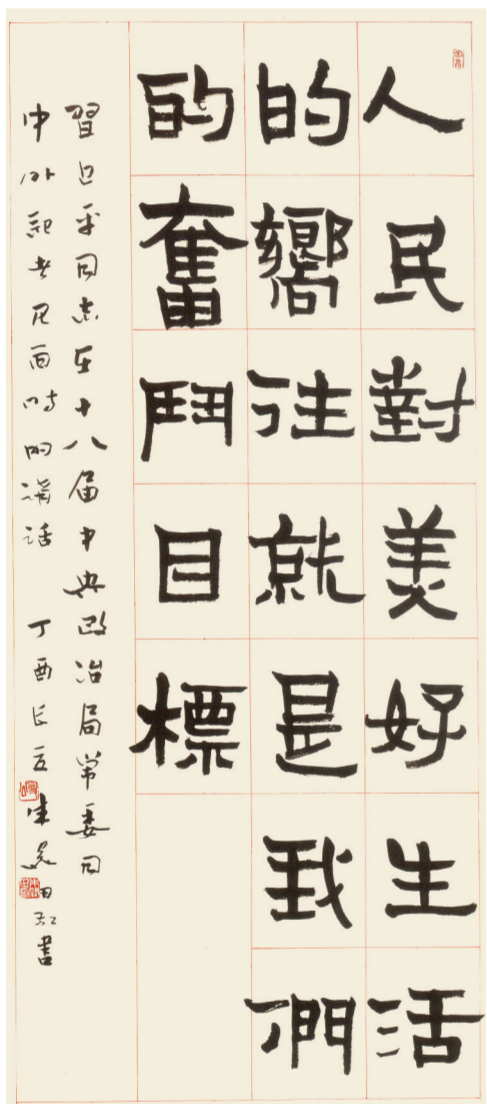 人民對美好生活
的嚮往就是我們
的奮鬥目標
習近平同志在十八届中央政治局常委同
中外記者見面時的講話 丁酉長夏 朱 書